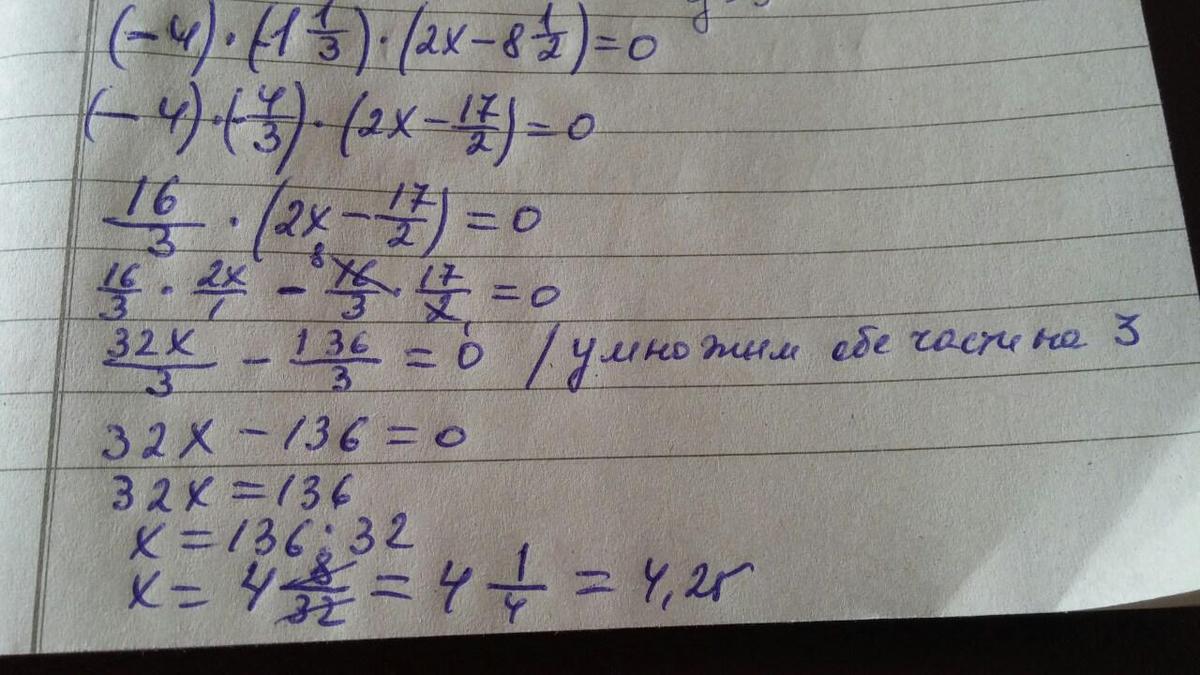 (-4)·(-1 1/3)·(2x-8 1/2)=0
(-4)·(-4/3)·(2x-17/2)=0
16/3·(2x-17/2)=0
16/3·2x/1-16/3·17/2=0 8 1
32x/3-136/3=0 / умножим обе части на 3
32x-136=0
32x=136
x=136:32
x=4 8/32=4 1/4=4,25